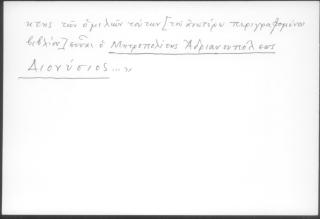 κτης τῶν ὁμιλιῶν τούτων [τοῦ ἀνωτέρω περιγραφομένου
βιβλίου] εἶναι ὁ Μητροπολίτης Ἀδριανουπόλεως
Διονύσιος...»